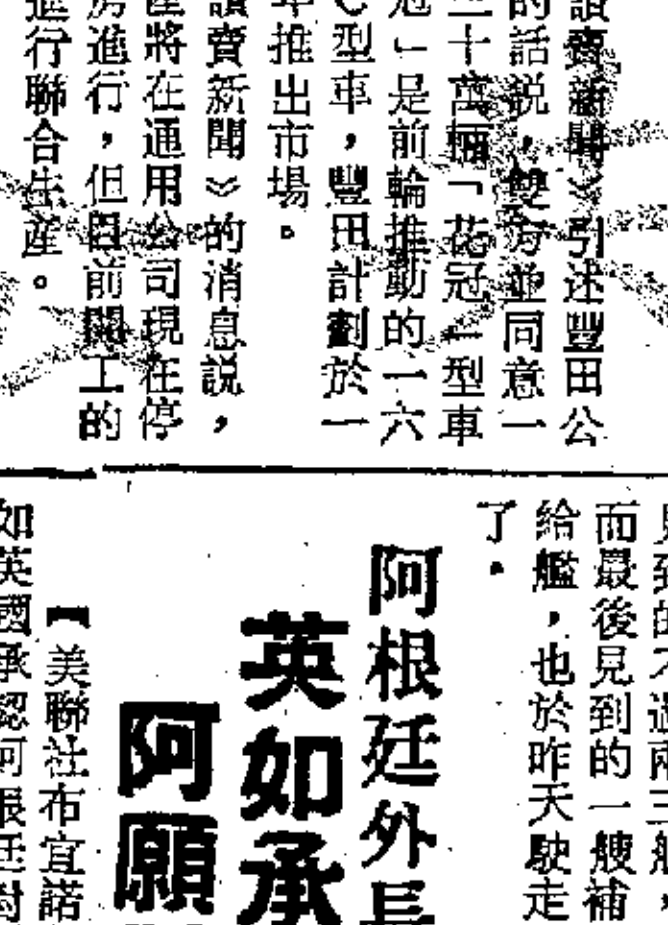 讀賣新聞》引述豐田公
的話説，雙方並同意一
三十萬輛「花冠」型車
冠」是前輪推動的一六
C型車，豐田計劃於一
年推出市場。
讀賣新聞》的消息説，
產將在通用公司現在停
房進行，但目前開工的
進行聯合生産。
見到的不過兩三艘，
而最後見到的一艘補
給艦，也於昨天駛走
了。
阿根廷外長
英如承
阿願
【美聯社布宜諾
如英國承認阿根廷對